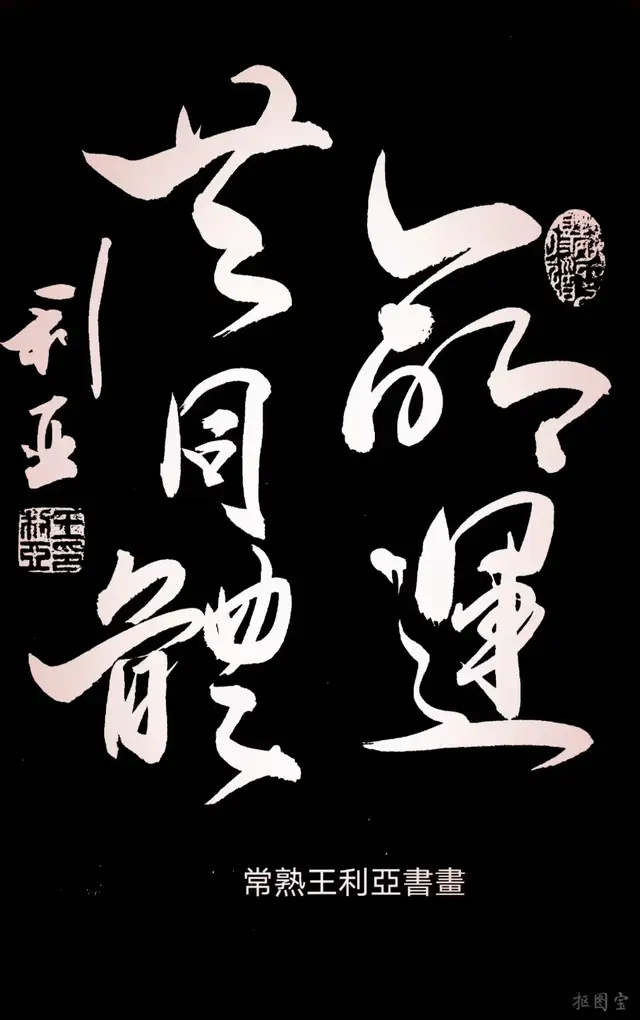 命運
共同體
利亚
王利亞印
常熟王利亞書畫
抠图宝